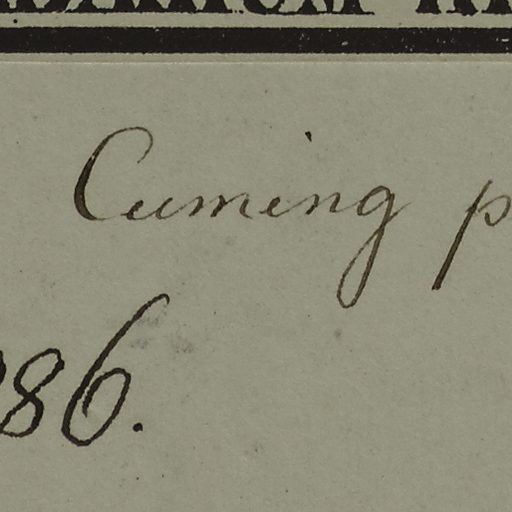 Cuming p
86.